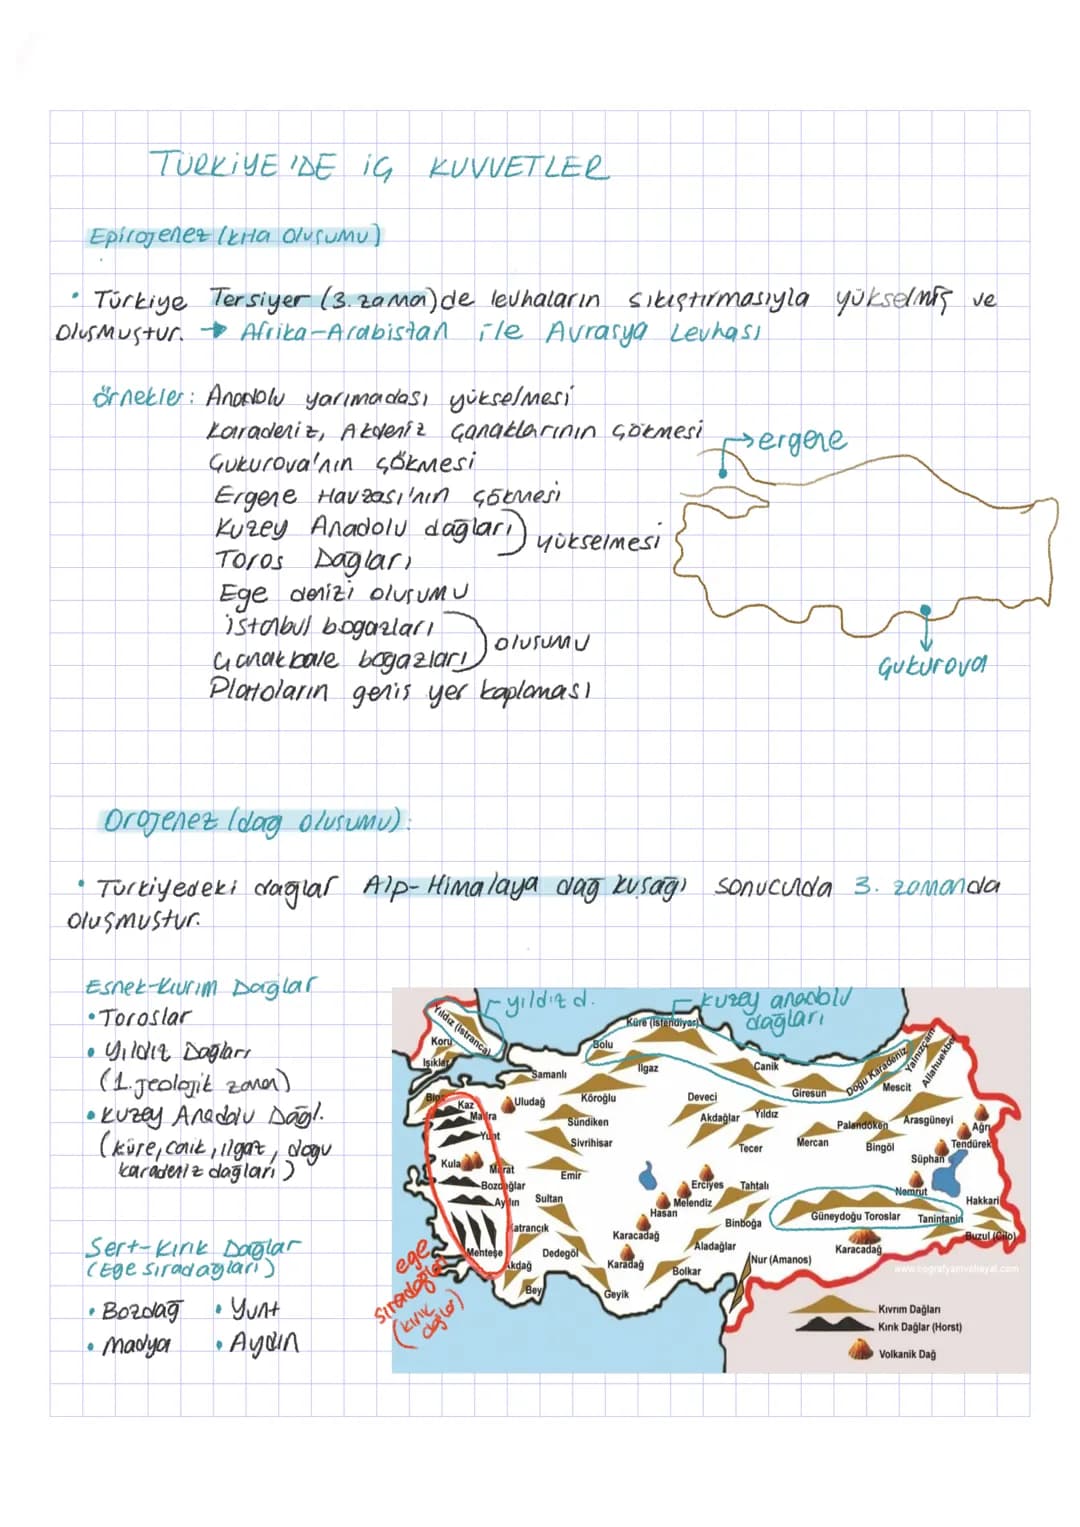 TÜRKİYE'DE İÇ KUVVETLER
Epirojenez (kıta oluşumu)
• Türkiye Tersiyer (3. zaman) de levhaların sıkıştırmasıyla yükselmiş ve
oluşmuştur. → Afrika-Arabistan ile Avrasya Levhası
örnekler: Anadolu yarımadası yükselmesi
Karadeniz, Akdeniz Çanaklarının Çökmesi
→ ergene
Çukurova'nın çökmesi
Ergene Havzası'nın çökmesi
Kuzey Anadolu dağları) yükselmesi
Toros Dağları
Ege denizi oluşumu
istanbul bogazları
oluşumu
Çanakkale bogazları)
Çukurova
Platoların geniş yer kaplaması
Orojenez (dağ olusumu):
• Türkiyedeki dağlar Alp-Himalaya dağ kuşağı sonucunda 3. zamanda
oluşmuştur.
Esnek-Kıvrım Dağlar
• Toroslar
• Yıldız Dağları
(1. jeolojik zaman)
• Kuzey Anadolu Dağl.
(küre, canik, ılgaz, dogu
karadeniz dağları)
Sert-Kırık Dağlar
(Ege sıradağları)
• Bozdağ • Yunt
• Madya • Aydın
yıldız d.
kuzey anadolu
dağları
Yıldız (Istranca)
Küre (İsfendiyar)
Koru
Bolu
Işıklar
Ilgaz
Canik
Giresun
Doğu Karadeniz
Yalnızçam
Allahuekber
Mescit
Samanlı
Biga
Kaz
Uludağ
Köroğlu
Deveci
Madra
Sündiken
Akdağlar
Yıldız
Palandöken
Arasgüneyi
Ağrı
Yunt
Sivrihisar
Tecer
Mercan
Bingöl
Tendürek
Süphan
Kula
Murat
Emir
Bozdağlar
Erciyes
Tahtalı
Nemrut
Aydın
Sultan
Melendiz
Hasan
Hakkari
Binboğa
Güneydoğu Toroslar
Tanintanin
Katrancık
Karacadağ
Buzul (Cilo)
Menteşe
Dedegöl
Aladağlar
Karacadağ
Akdağ
Karadağ
Bolkar
Nur (Amanos)
www.cografyamvehayat.com
Bey
Geyik
ege
sıradağları
(kırık
dağlar)
Kıvrım Dağları
Kırık Dağlar (Horst)
Volkanik Dağ